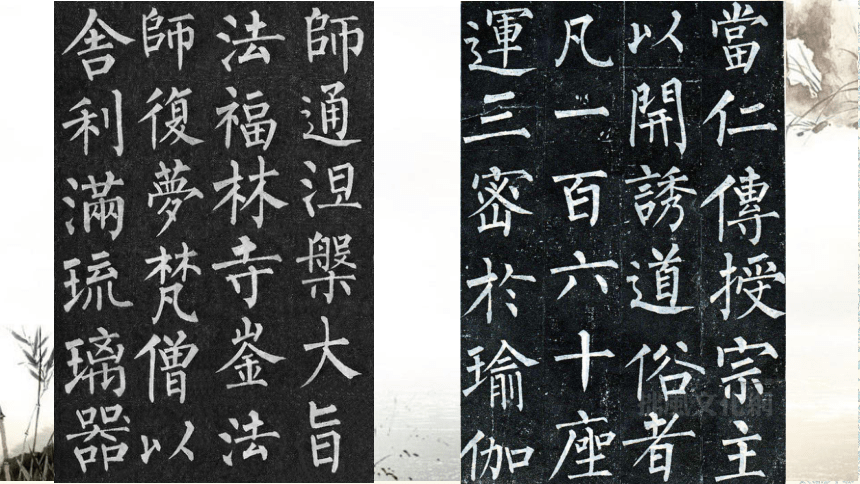 師通涅槃大旨
法福林寺崟法
師復夢梵僧以
舍利滿琉璃器
當仁傳授宗主
以開誘道俗者
凡一百六十座
運三密於瑜伽
文化網